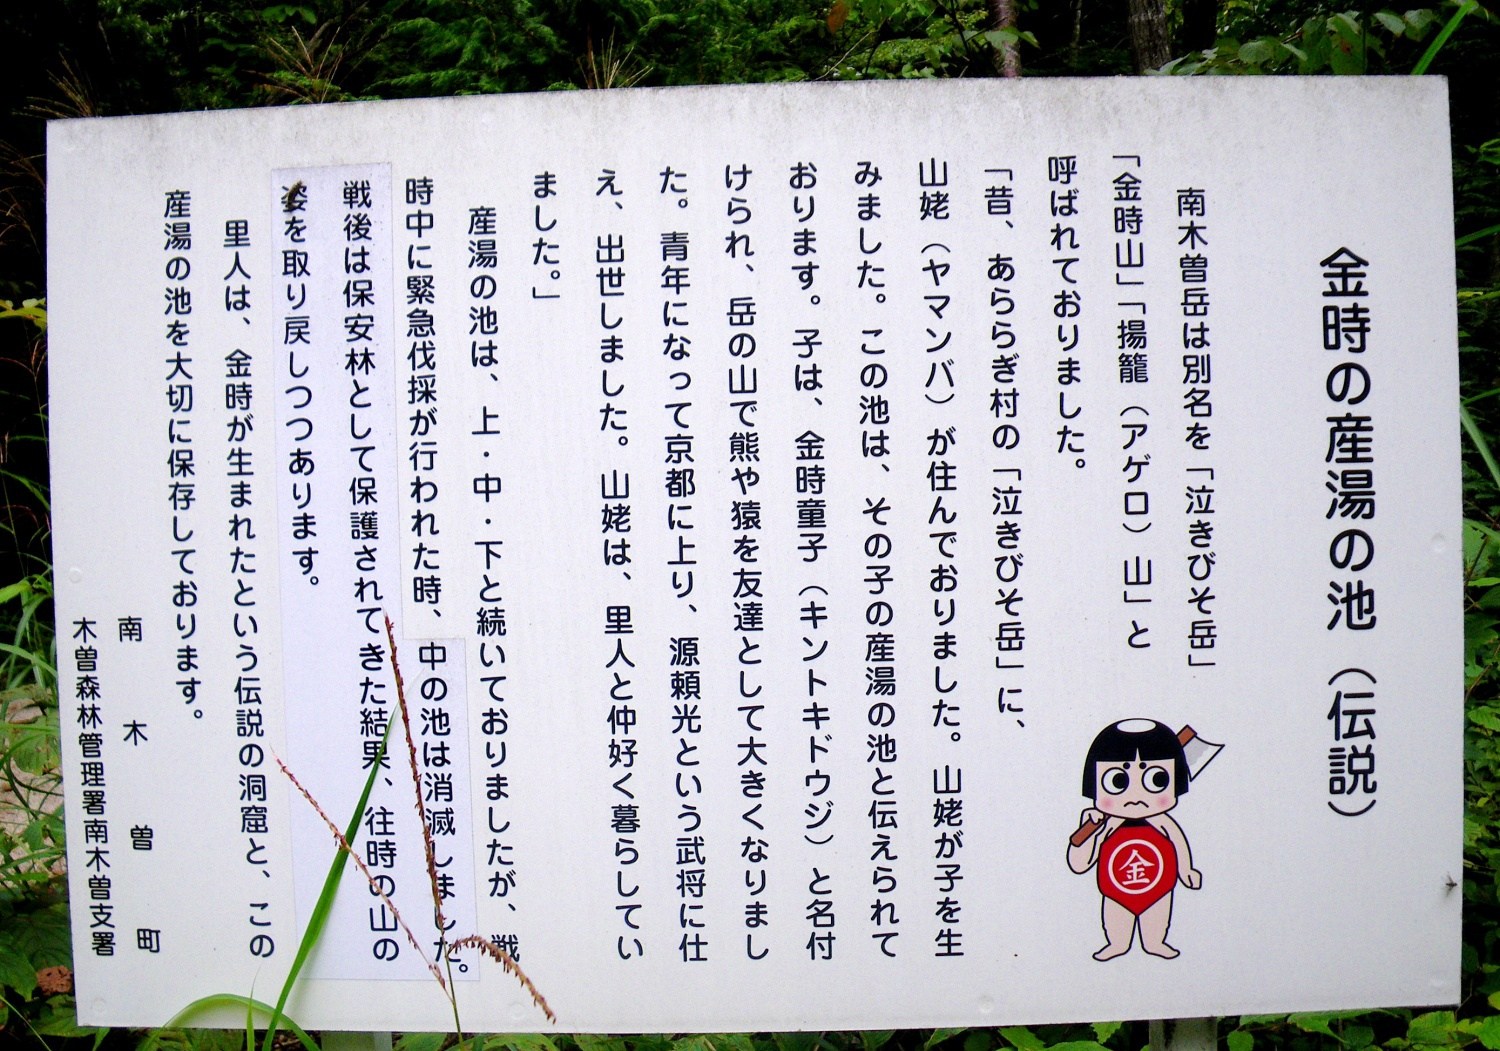 金時の産湯の池（伝説）
南木曽岳は別名を「泣きびそ岳」
「金時山」「揚籠（アゲロ）山」と
呼ばれておりました。
「昔、あららぎ村の「泣きびそ岳」に、
山姥（ヤマンバ）が住んでおりました。山姥が子を生
みました。この池は、その子の産湯の池と伝えられて
おります。子は、金時童子（キントキドウジ）と名付
けられ、岳の山で熊や猿を友達として大きくなりまし
た。青年になって京都に上り、源頼光という武将に仕
え、出世しました。山姥は、里人と仲好く暮らしてい
ました。」
産湯の池は、上・中・下と続いておりましたが、戦
時中に緊急伐採が行われた時、中の池は消滅しました。
戦後は保安林として保護されてきた結果、往時の山の
姿を取り戻しつつあります。
里人は、金時が生まれたという伝説の洞窟と、この
産湯の池を大切に保存しております。
南木曽町
木曽森林管理署南木曽支署
金